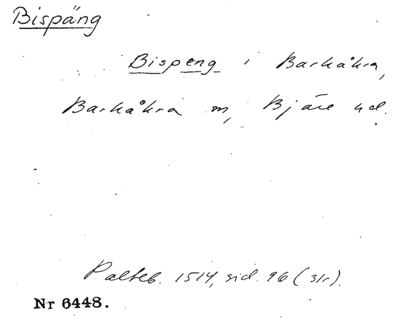 Bispäng
Bispeng i Barkåkra,
Barkåkra sn, Bjäre hd.
Palteb. 1514, sid. 96 (str).
Nr 6448.